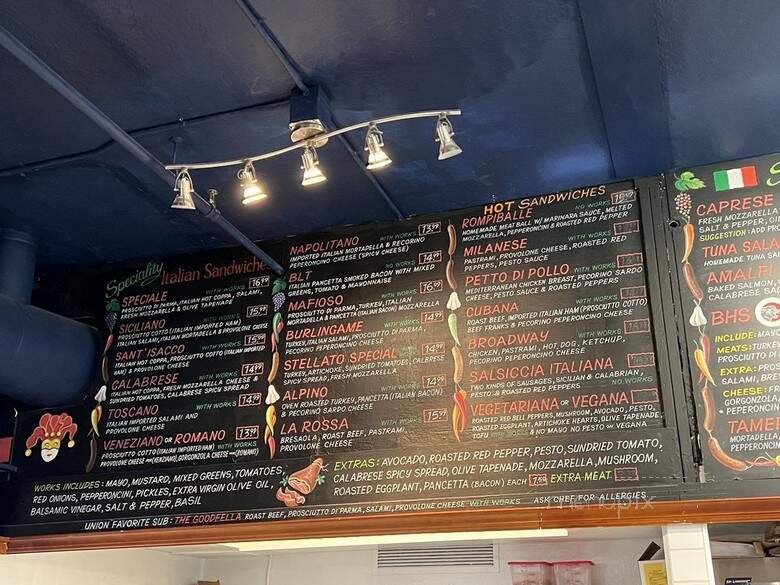 Speciality Italian Sandwiches
SPECIALE WITH WORKS 16.99
PROSCIUTTO DI PARMA, ITALIAN HOT COPPA, SALAMI,
FRESH MOZZARELLA & OLIVE TAPENADE
SICILIANO WITH WORKS 15.99
PROSCIUTTO COTTO (ITALIAN IMPORTED HAM)
ITALIAN SALAMI, ITALIAN MORTADELLA & PROVOLONE CHEESE
SANT'ISACCO WITH WORKS 15.99
ITALIAN HOT COPPA, PROSCIUTTO COTTO (ITALIAN IMPORTED
HAM) & PROVOLONE CHEESE
CALABRESE WITH WORKS 14.99
ITALIAN HOT COPPA, FRESH MOZZARELLA CHEESE &
SUNDRIED TOMATOES, CALABRESE SPICY SPREAD
TOSCANO WITH WORKS 14.99
ITALIAN IMPORTED SALAMI AND
PROVOLONE CHEESE
VENEZIANO OR ROMANO WITH WORKS 13.99
PROSCIUTTO COTTO (ITALIAN IMPORTED HAM) WITH
PROVOLONE CHEESE (VENEZIANO), GORGONZOLA CHEESE (ROMANO)
NAPOLITANO WITH WORKS 13.99
IMPORTED ITALIAN MORTADELLA & PECORINO
PEPERONCINO CHEESE (SPICY CHEESE)
BLT WITH WORKS
ITALIAN PANCETTA SMOKED BACON WITH MIXED
GREENS, TOMATO & MAYONNAISE
MAFIOSO WITH WORKS 16.99
PROSCIUTTO DI PARMA, TURKEY, ITALIAN
MORTADELLA & PANCETTA (ITALIAN BACON) MOZZARELLA
BURLINGAME WITH WORKS 14.99
TURKEY, ITALIAN SALAMI, PROSCIUTTO DI PARMA,
PECORINO PEPERONCINO CHEESE
STELLATO SPECIAL WITH WORKS 14.99
TURKEY, ARTICHOKE, SUNDRIED TOMATOES, CALABRESE
SPICY SPREAD, FRESH MOZZARELLA
ALPINO WITH WORKS 14.99
OVEN ROASTED TURKEY, PANCETTA (ITALIAN BACON)
& PECORINO SARDO CHEESE
LA ROSSA WITH WORKS 15.99
BRESAOLA, ROAST BEEF, PASTRAMI,
PROVOLONE CHEESE
HOT SANDWICHES
ROMPIBALLE NO WORKS
HOMEMADE MEAT BALL W/ MARINARA SAUCE, MELTED
MOZZARELLA, PEPPERONCINI & ROASTED RED PEPPER
MILANESE WITH WORKS
PASTRAMI, PROVOLONE CHEESE, ROASTED RED
PEPPERS, PESTO SAUCE
PETTO DI POLLO WITH WORKS
MEDITERRANEAN CHICKEN BREAST, PECORINO SARDO
CHEESE, PESTO SAUCE & ROASTED PEPPERS
CUBANA WITH WORKS
ROAST BEEF, IMPORTED ITALIAN HAM (PROSCIUTTO COTTO)
BEEF FRANKS & PECORINO PEPERONCINO CHEESE
BROADWAY WITH WORKS
CHICKEN, PASTRAMI, HOT DOG, KETCHUP,
PECORINO PEPERONCINO CHEESE
SALSICCIA ITALIANA
TWO KINDS OF SAUSAGES, SICILIAN & CALABRIAN,
PESTO & ROASTED RED PEPPERS NO WORKS
VEGETARIANA OR VEGANA
ROASTED RED BELL PEPPERS, MUSHROOM, AVOCADO, PESTO,
ROASTED EGGPLANT, ARTICHOKE HEARTS, OLIVE TAPENADE,
TOFU & NO MAYO NO PESTO = VEGANA
WORKS INCLUDES: MAYO, MUSTARD, MIXED GREENS, TOMATOES,
RED ONIONS, PEPPERONCINI, PICKLES, EXTRA VIRGIN OLIVE OIL,
BALSAMIC VINEGAR, SALT & PEPPER, BASIL
EXTRAS: AVOCADO, ROASTED RED PEPPER, PESTO, SUNDRIED TOMATO,
CALABRESE SPICY SPREAD, OLIVE TAPENADE, MOZZARELLA, MUSHROOM,
ROASTED EGGPLANT, PANCETTA (BACON) EACH EXTRA MEAT
UNION FAVORITE SUB: THE GOODFELLA ROAST BEEF, PROSCIUTTO DI PARMA, SALAMI, PROVOLONE CHEESE WITH WORKS ASK CHEF FOR ALLERGIES
CAPRESE
FRESH MOZZARELLA
SALT & PEPPER,
SUGGESTION: ADD
TUNA SALA
HOMEMADE TUNA
AMALFI
BAKED SALMON,
CALABRESE
BHS
INCLUDE:
MEATS: TURKEY
PROSCIUTTO
EXTRA:
SALAMI,
CHEESE:
GORGONZOLA,
PEPERONCINO
TAMER
MORTADELLA
PEPPERONCINI
menupix